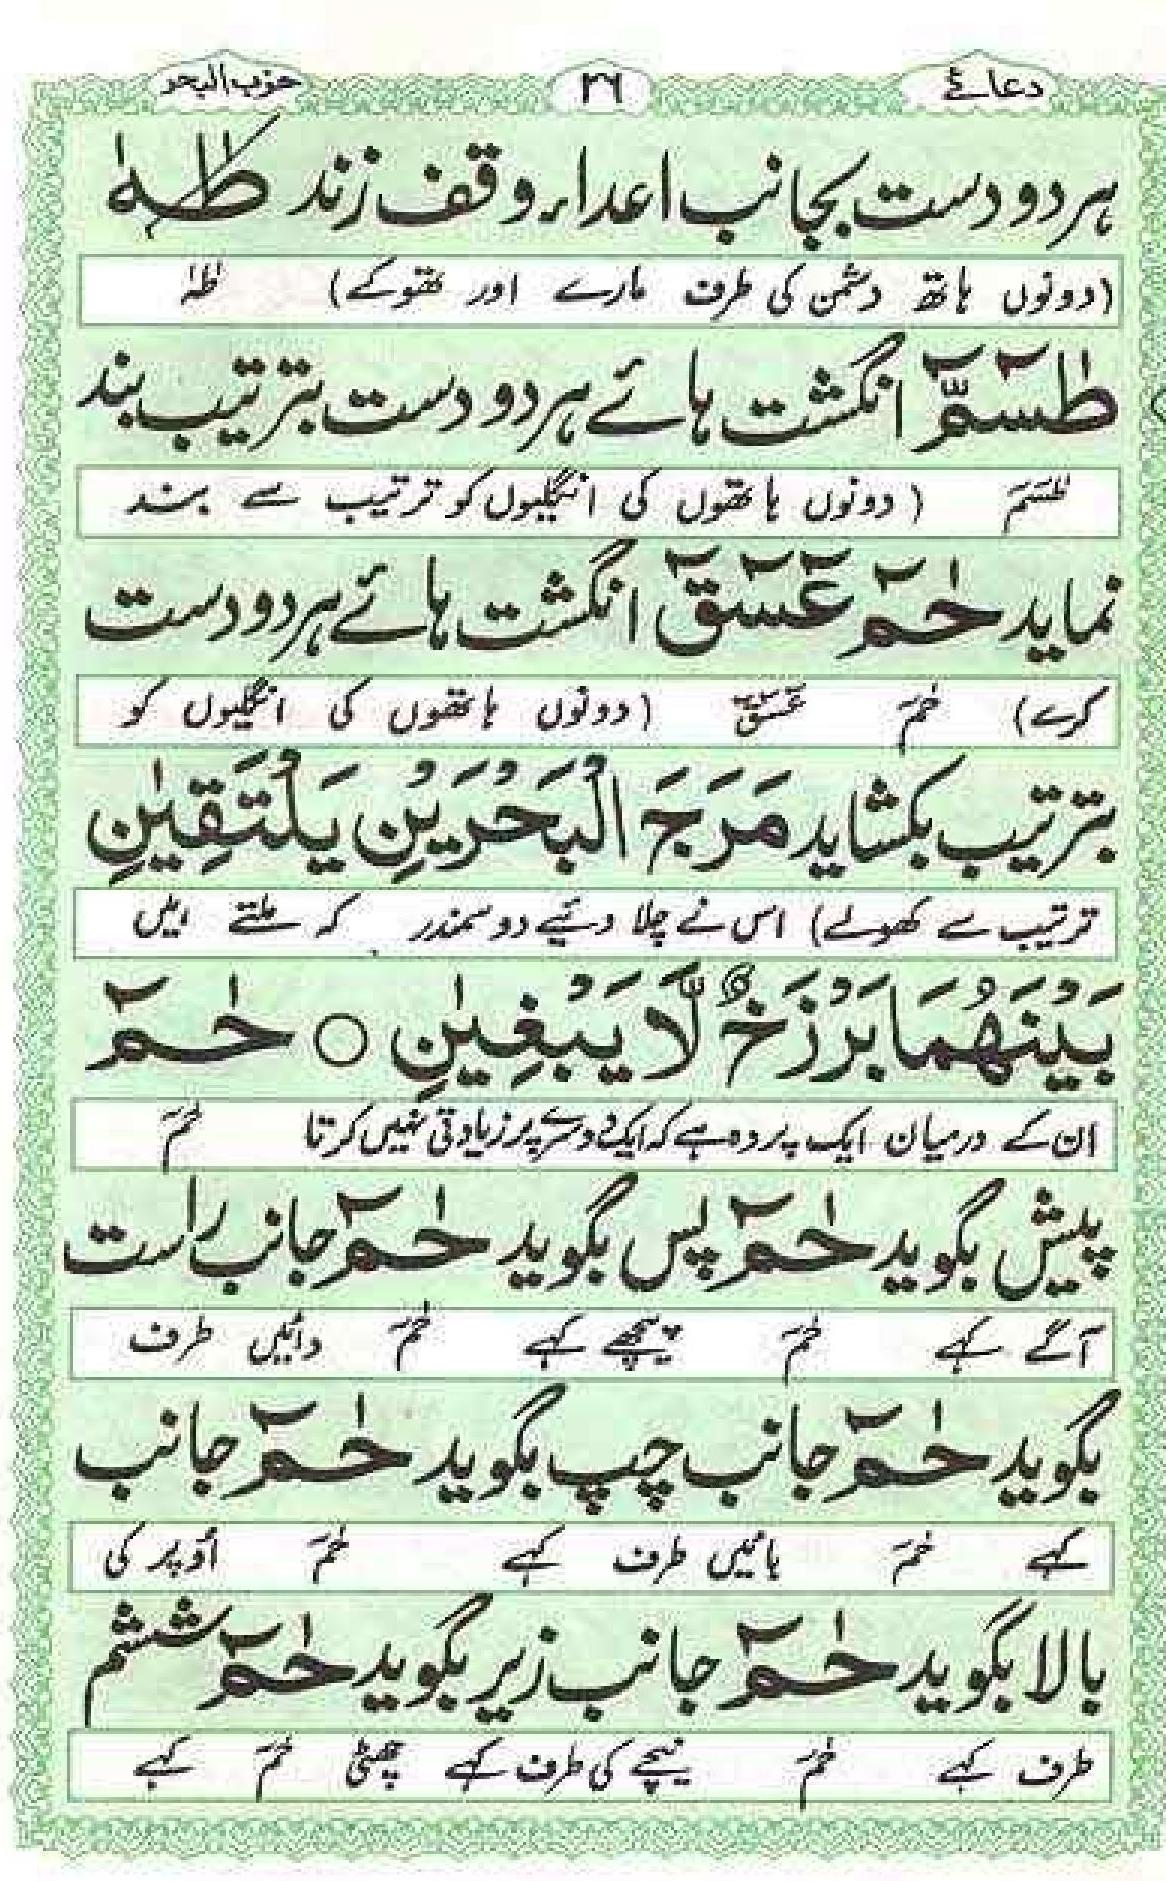 دعائے ۳۶ حزب البحر
ہر دو دست بجانب اعداء وقف زند طٰہٰ
(دونوں ہاتھ دشمن کی طرف مارے اور تھوکے) طٰہٰ
طٰسٓمّٓ انگشت ہائے ہر دو دست بترتیب بند
طٰسٓمٓ (دونوں ہاتھوں کی انگلیوں کو ترتیب سے بند
نماید حٰمٓ عٓسٓقٓ انگشت ہائے ہر دو دست
کرے) حٰمٓ عٓسٓقٓ (دونوں ہاتھوں کی انگلیوں کو
بترتیب بکشاید مَرَجَ الْبَحْرَيْنِ يَلْتَقِيٰنِ
ترتیب سے کھولے) اس نے چلا دئیے دو سمندر کہ ملتے ہیں
بَيْنَهُمَا بَرْزَخٌ لَّا يَبْغِيٰنِ ○ حٰمٓ
ان کے درمیان ایک پردہ ہے کہ ایک دوسرے پر زیادتی نہیں کرتا حٰمٓ
پیش بگوید حٰمٓ پس بگوید حٰمٓ جانب راست
آگے کہے حٰمٓ پیچھے کہے حٰمٓ دائیں طرف
بگوید حٰمٓ جانب چپ بگوید حٰمٓ جانب
کہے حٰمٓ بائیں طرف کہے حٰمٓ اُوپر کی
بالا بگوید حٰمٓ جانب زیر بگوید حٰمٓ ششم
طرف کہے حٰمٓ نیچے کی طرف کہے چھٹی حٰمٓ کہے